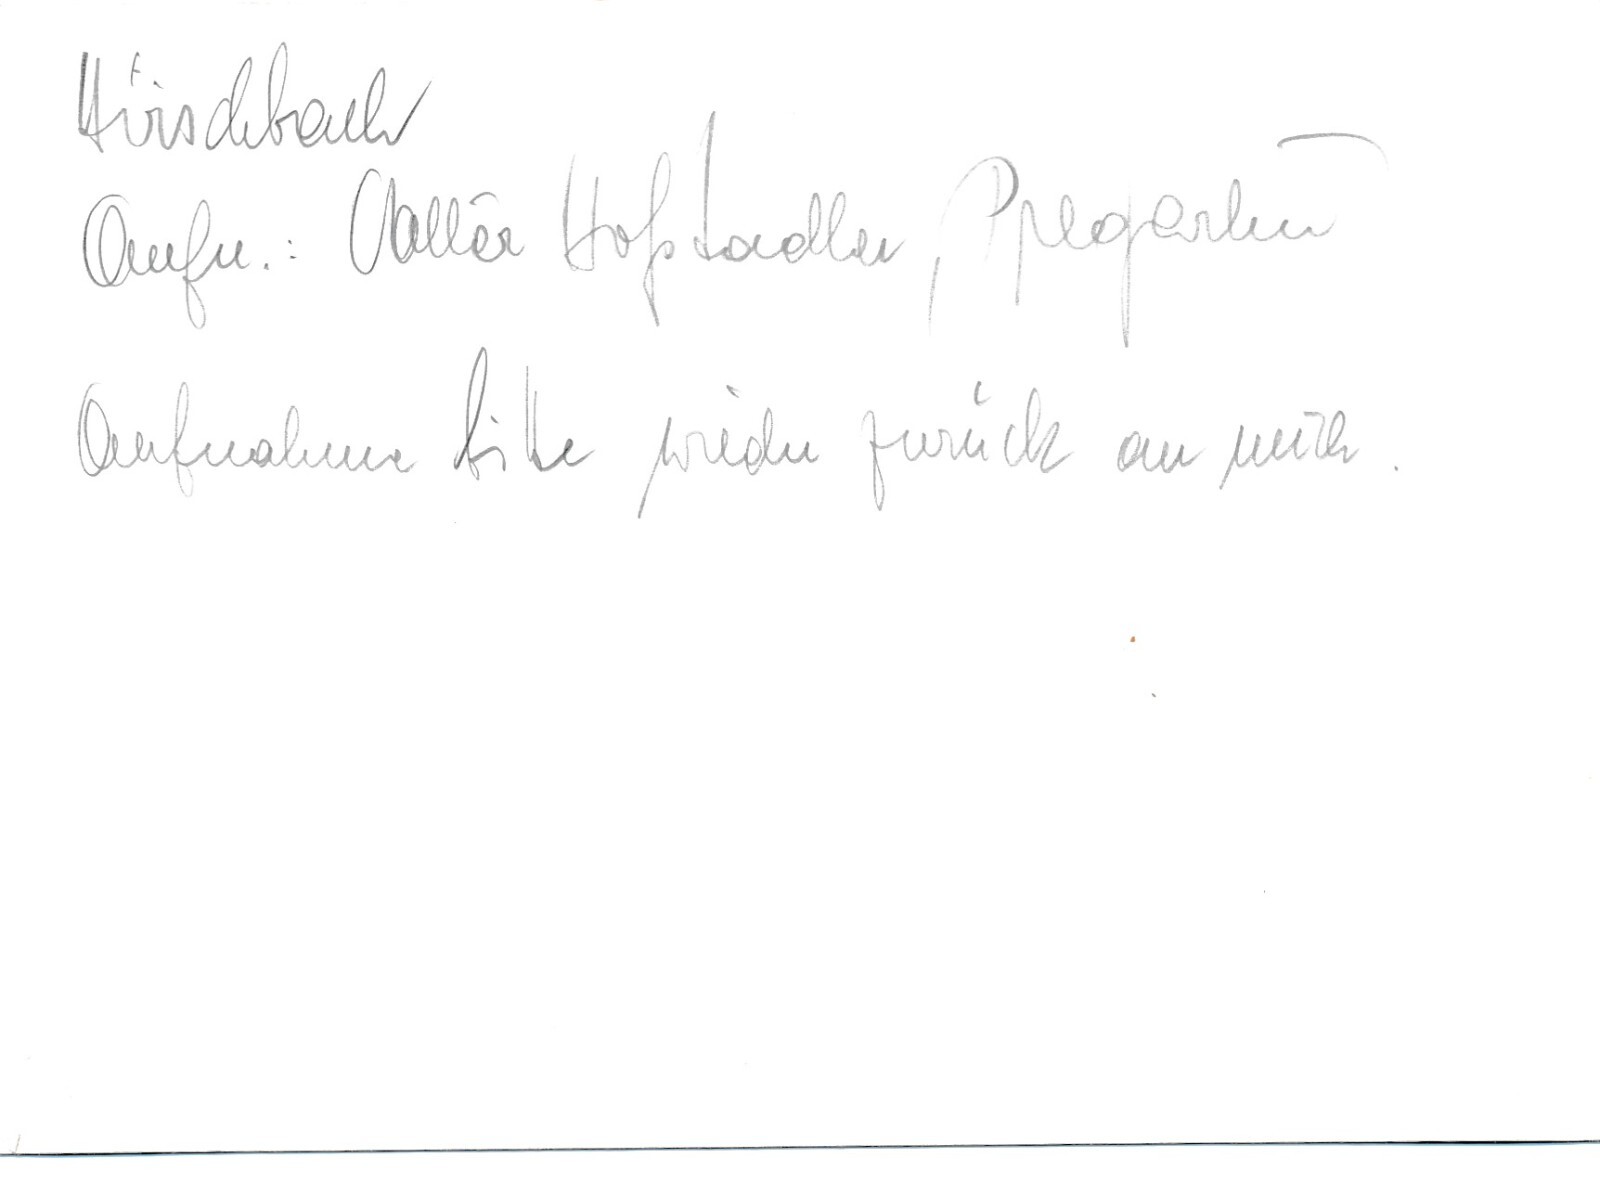 Hirschbach
Aufn.: Valtér Hofstadler, Pregarten
Aufnahme bitte wieder zurück an mich.